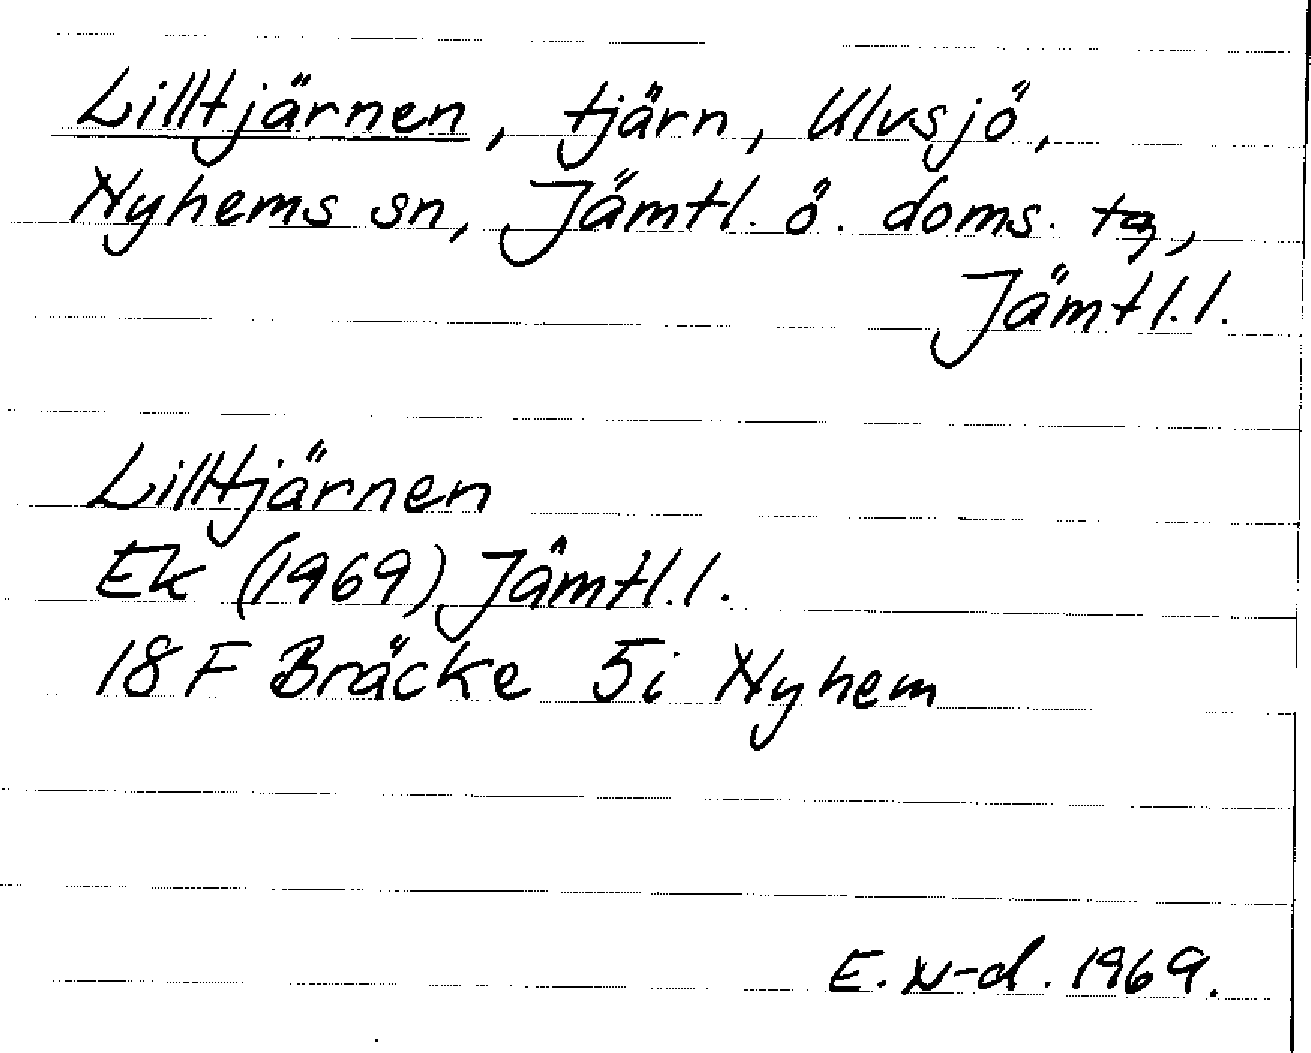 Lilltjärnen, tjärn, Ulvsjö,
Nyhems sn, Jämtl. ö. doms. tg,
Jämtl. l.
Lilltjärnen
Ek (1969) Jämtl. l.
18 F Bräcke 5i Nyhem
E. N-d. 1969.